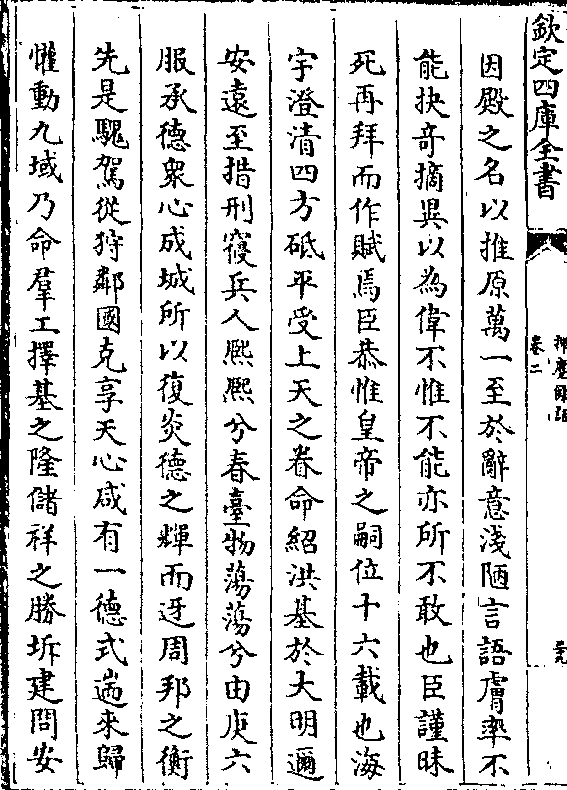 欽定四庫全書
揮麈餘話
卷二
因殿之名以推原萬一至於辭意淺陋言語膚率不
能抉竒摘異以為偉不惟不能亦所不敢也臣謹昧
死再拜而作賦焉臣恭惟皇帝之嗣位十六載也海
宇澄清四方砥平受上天之眷命紹洪基於大明邇
安遠至措刑寢兵人熙熙兮春臺物蕩蕩兮由庚六
服承德衆心成城所以復炎德之輝而迓周邦之衡
先是騩駕從狩鄰國克享天心咸有一德式遄來歸
懽動九域乃命羣工擇基之隆儲祥之勝坼建問安